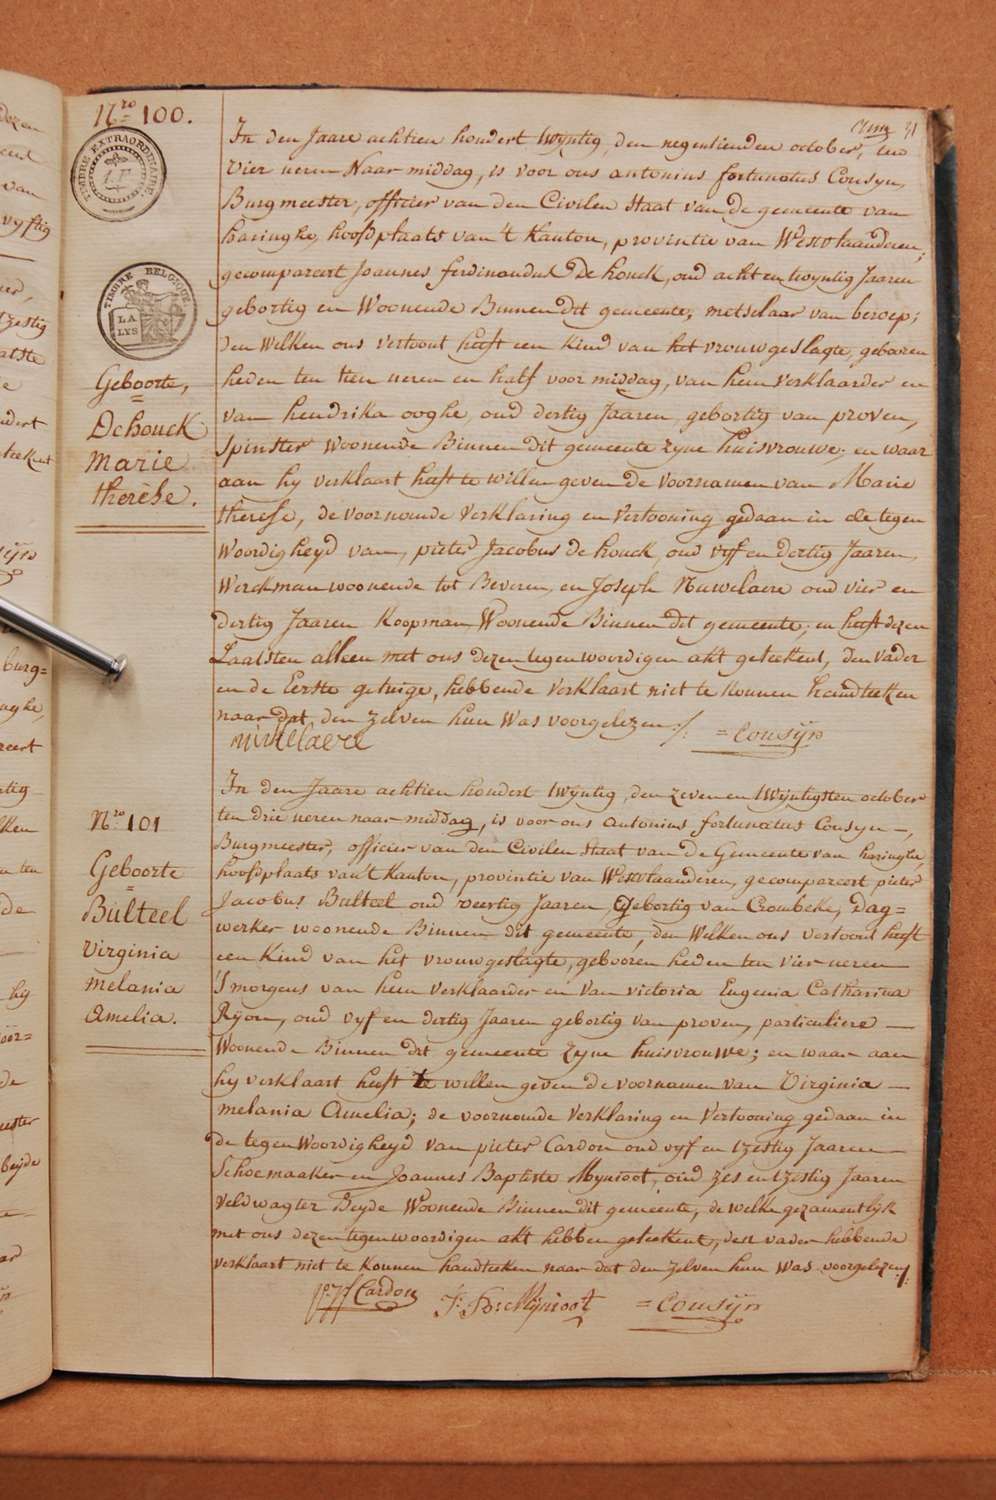 Nro 100.
TIMBRE EXTRAORDINAIRE
TIMBRE BELGIQUE
LA
LYS
Geboorte,
Dehouck
marie
therèse.
31
In den Jaare achtien hondert twÿntig, den negentienden october, ten
vier uren Naar middag, is voor ons antonius fortunatus Cousyn,
Burgmeester, officier van den Civilen staat van de gemeente van
haringhe, hoofdplaats van 't Kanton, provintie van Westvlaanderen,
gecompareert Joannes ferdinandus De houck, oud acht en twyntig Jaaren
gebortig en Woonende Binnen dit gemeente, metselaar van beroep;
den Welken ons vertoont heeft een kind van het vrouwgeslagte, gebooren
heden ten tien ueren en half voor middag, van hem verklaarder en
van hendrika ooghe, oud dertig Jaaren, gebortig van proven,
Spinster Woonende Binnen dit gemeente zyne huisvrouwe; en waar
aan hy verklaart heeft te willen geven de voornamen van Marie
therese, de voornoemde verklaring en vertooning gedaan in de tegen
Woordigheyd van, pieter Jacobus de houck, oud vyf en dertig Jaaren,
Werckman woonende tot Beveren, en Joseph Nuwelaere oud vier en
dertig Jaaren Koopman Woonende Binnen dit gemeente; en heeft dezen
Laatsten alleen met ons dezen tegenwoordigen akt geteekent, den vader
en de Eerste getuige, hebbende verklaart niet te konnen handteeken
naar dat den zelven hem Was voorgelezen ./.
= Cousÿn
Nro 101
Geboorte
Bulteel
virginia
melania
Amelia.
In den Jaare achtien hondert twÿntig, den zeven en twÿntigsten october
ten drie ueren naar middag, is voor ons antonius fortunatus Cousyn,
Burgmeester, officier van den Civilen Staat van de Gemeente van haringhe
hoofdplaats van't Kanton, provintie van Westvlaanderen, gecompareert pieter
Jacobus Bulteel oud veertig Jaaren, Gebortig van Crombeke, Dag=
werker woonende Binnen dit gemeente, den Welken ons vertoont heeft
een kind van het vrouwgeslagte, gebooren heden ten vier ueren
S'morgens van hem verklaarder en van victoria Eugenia Catharina
Rÿon, oud vyf en dertig Jaaren gebortig van proven, particuliere
Woonende Binnen dit gemeente zyne huisvrouwe; en waar aan
hy verklaart heeft te willen geven de voornamen van Virginia
melania Amelia; de voornoemde verklaring en vertooning gedaan in
de tegenWoordigheyd van pieter Cardon oud vyf en tzestig Jaaren
Schoemaaker en Joannes Baptiste Mynioot, oud zes en tzestig Jaaren
veldwagter Beyde Woonende Binnen dit gemeente, de welke gezamentlÿk
met ons dezen tegenwoordigen akt hebben geteekent, den vader hebbende
verklaart niet te konnen handteeken naar dat den zelven hem Was voorgelezen ./.
Cardon J: Bte Mÿnioot = Cousÿn